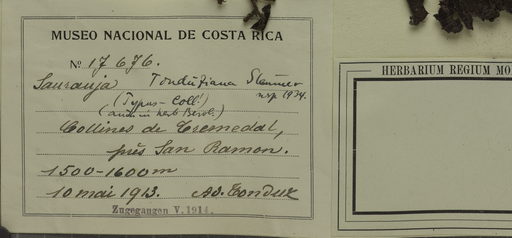 MUSEO NACIONAL DE COSTA RICA
No 17676.
Saurauja Tonduziana Sleumer
n.sp. 1934.
(Typus-Coll!)
(auch in herb Berol.)
Collines de Tremedal,
près San Ramon.
1500-1600m
10 mai 1913. Ad. Tonduz
Zugegangen V. 1914.
HERBARIUM REGIUM MO